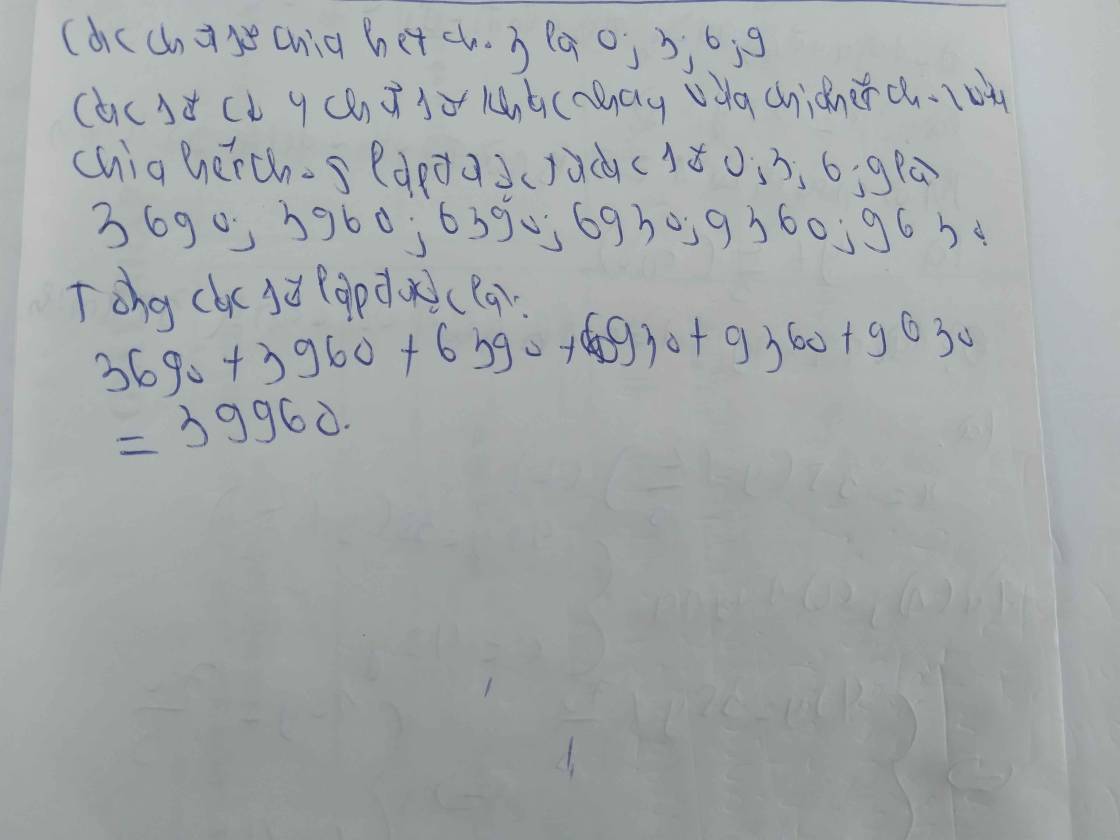 Các chữ số chia hết cho 3 là 0; 3; 6; 9
Các số có 4 chữ số khác nhau vừa chia hết cho 2 vừa
chia hết cho 5 lập được từ các số 0; 3; 6; 9 là
3690; 3960; 6390; 6930; 9360; 9630
Tổng các số lập được là:
3690 + 3960 + 6390 + 6930 + 9360 + 9630
= 39960.